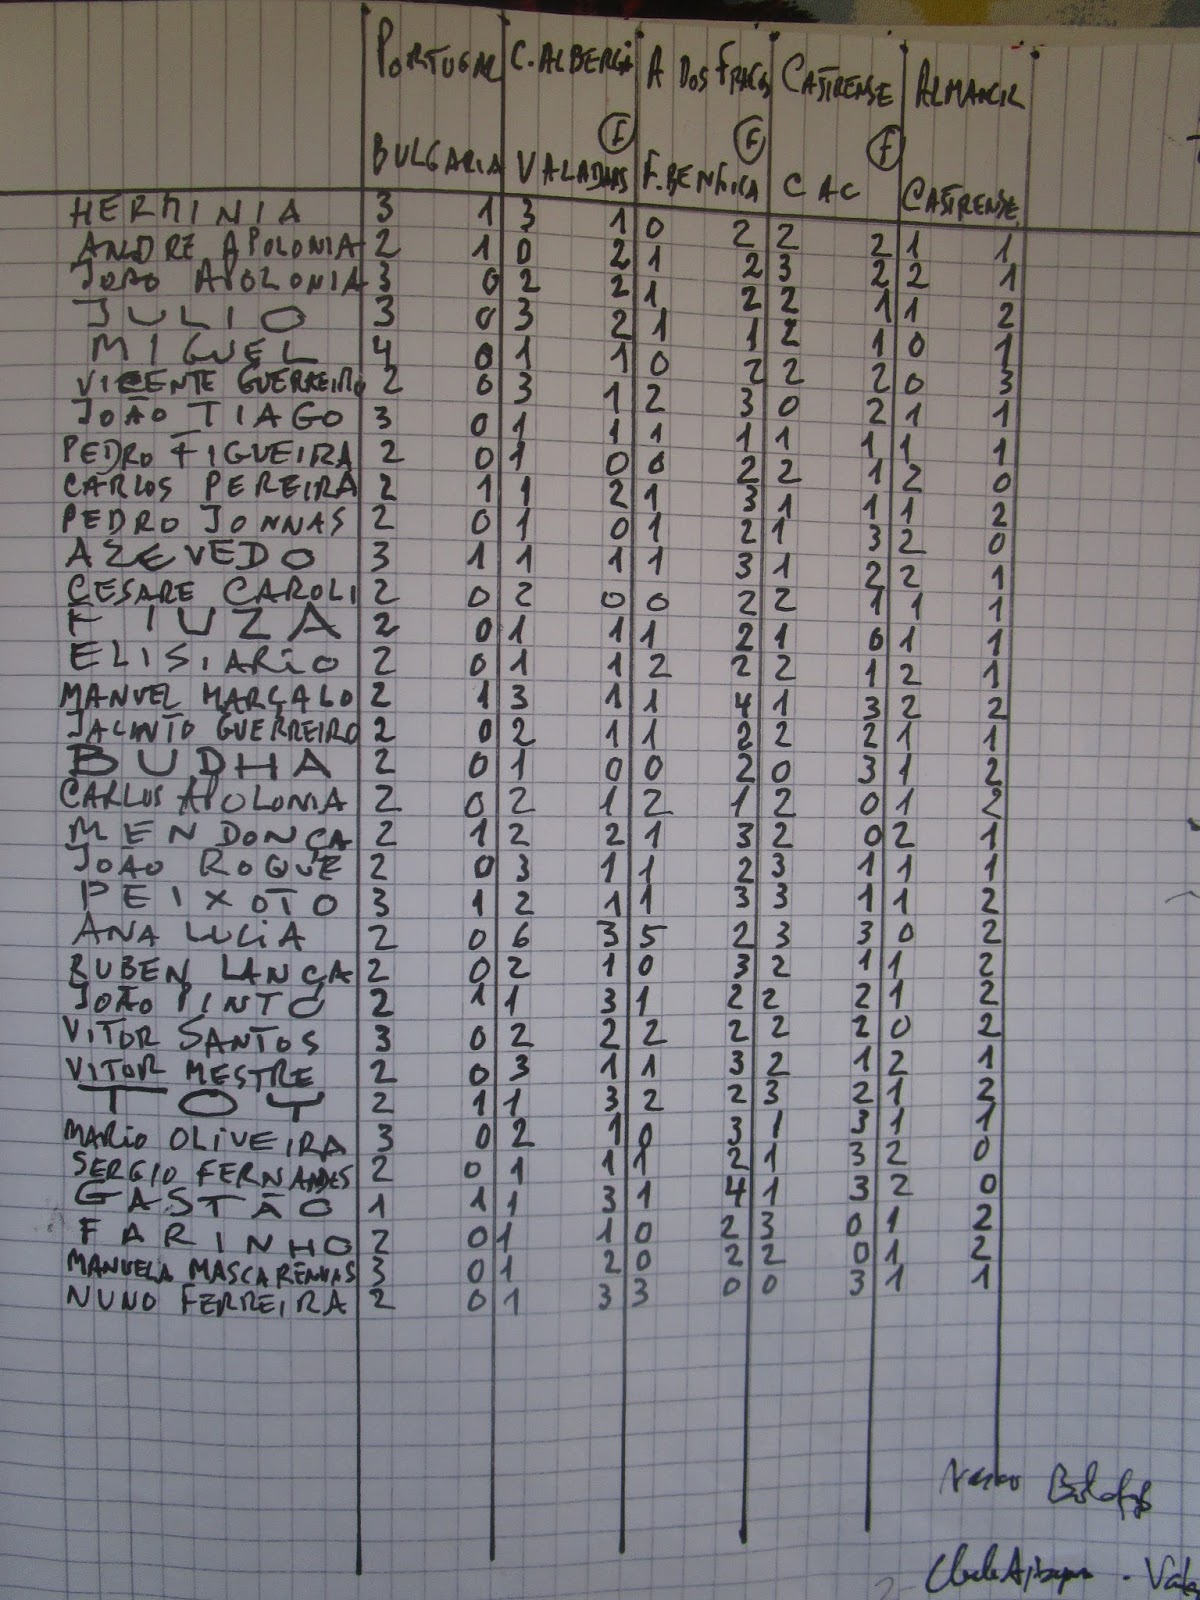 PORTUGAL C. ALBERGA A DOS FRACS CASTRENSE ALMANCIL
F F F
BULGARIA VALADARS F. BENFICA CAC CASTRENSE
HERMINIA 3 1 3 1 0 2 2 2 1 1
ANDRE APOLONIA 2 1 0 2 1 2 3 2 2 1
JOAO APOLONIA 3 0 2 2 1 2 2 1 1 2
JULIO 3 0 3 2 1 1 2 1 0 1
MIGUEL 4 0 1 1 0 2 2 2 0 3
VICENTE GUERREIRO 2 0 3 1 2 3 0 2 1 1
JOÃO TIAGO 3 0 1 1 1 1 1 1 1 1
PEDRO FIGUEIRA 2 0 1 0 0 2 2 1 2 0
CARLOS PEREIRA 2 1 1 2 1 3 1 1 1 2
PEDRO JONNAS 2 0 1 0 1 2 1 3 2 0
AZEVEDO 3 1 1 1 1 3 1 2 2 1
CESARE CAROLI 2 0 2 0 0 2 2 1 1 1
FIUZA 2 0 1 1 1 2 1 0 1 1
ELISIARIO 2 0 1 1 2 2 2 1 2 1
MANUEL MARÇALO 2 1 3 1 1 4 1 3 2 2
JACINTO GUERREIRO 2 0 2 1 1 2 2 2 1 1
BUDHA 2 0 1 0 0 2 0 3 1 2
CARLOS APOLONIA 2 0 2 1 2 1 2 0 1 2
MENDONÇA 2 1 2 2 1 3 2 0 2 1
JOÃO ROQUE 2 0 3 1 1 2 3 1 1 1
PEIXOTO 3 1 2 1 1 3 3 1 1 2
ANA LUCIA 2 0 6 3 5 2 3 3 0 2
RUBEN LANÇA 2 0 2 1 0 3 2 1 1 2
JOÃO PINTO 2 1 1 3 1 2 2 2 1 2
VITOR SANTOS 3 0 2 2 2 2 2 2 0 2
VITOR MESTRE 2 0 3 1 1 3 2 1 2 1
TOY 2 1 1 3 2 2 3 2 1 2
MARIO OLIVEIRA 3 0 2 1 0 3 1 3 1 1
SERGIO FERNANDES 2 0 1 1 1 2 1 3 2 0
GASTÃO 1 1 1 3 1 4 1 3 2 0
FARINHO 2 0 1 1 0 2 3 0 1 2
MANUELA MASCARENHAS 3 0 1 2 0 2 2 0 1 2
NUNO FERREIRA 2 0 1 3 3 0 0 3 1 1